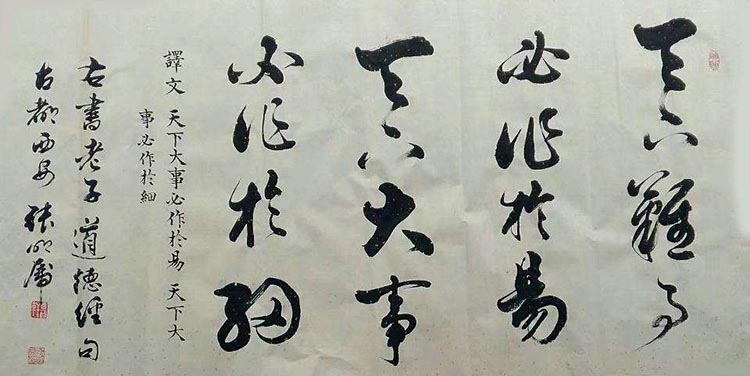 天下難事
必作於易
天下大事
必作於細
譯文 天下大事必作於易 天下大
事必作於細
右書老子道德經句
古都西安 張